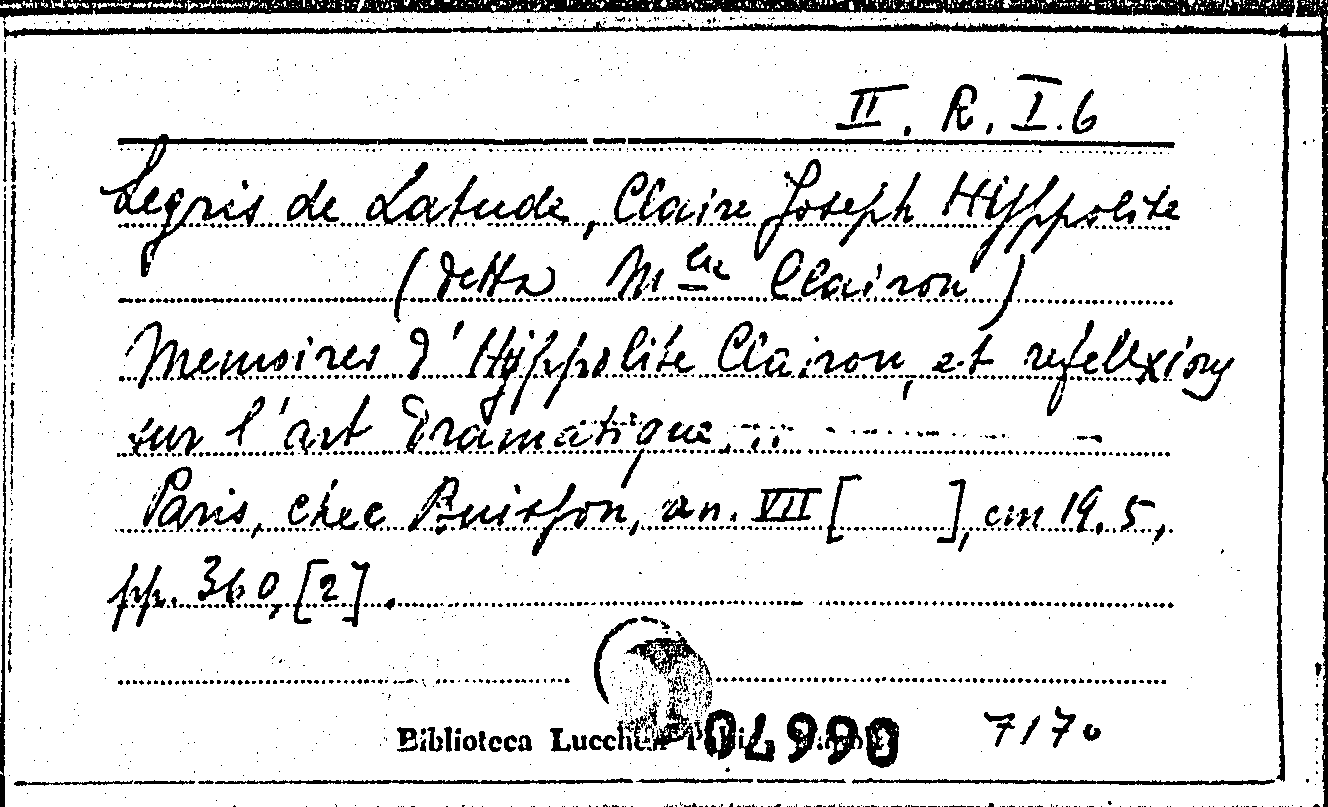 II. R. I. 6
Legris de Latude, Claire Joseph Hyppolite
(detta Mlle Clairon)
Memoires d'Hyppolite Clairon, et refellexions
sur l'art dramatique, ..
Paris, chec Buisson, an. VII [ ], cm 19.5,
pp. 360, [2].
Biblioteca Lucchesi
7170